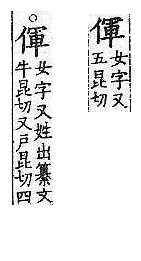 㑮
女字又
五昆切
㑮
女字又姓出纂文
牛昆切又戸昆切四